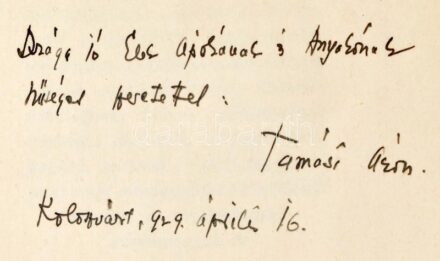 Drága jó Elek Apókának s Anyókának
hűséges szeretettel:
Tamási Áron.
Kolozsvárt, 929. április 16.